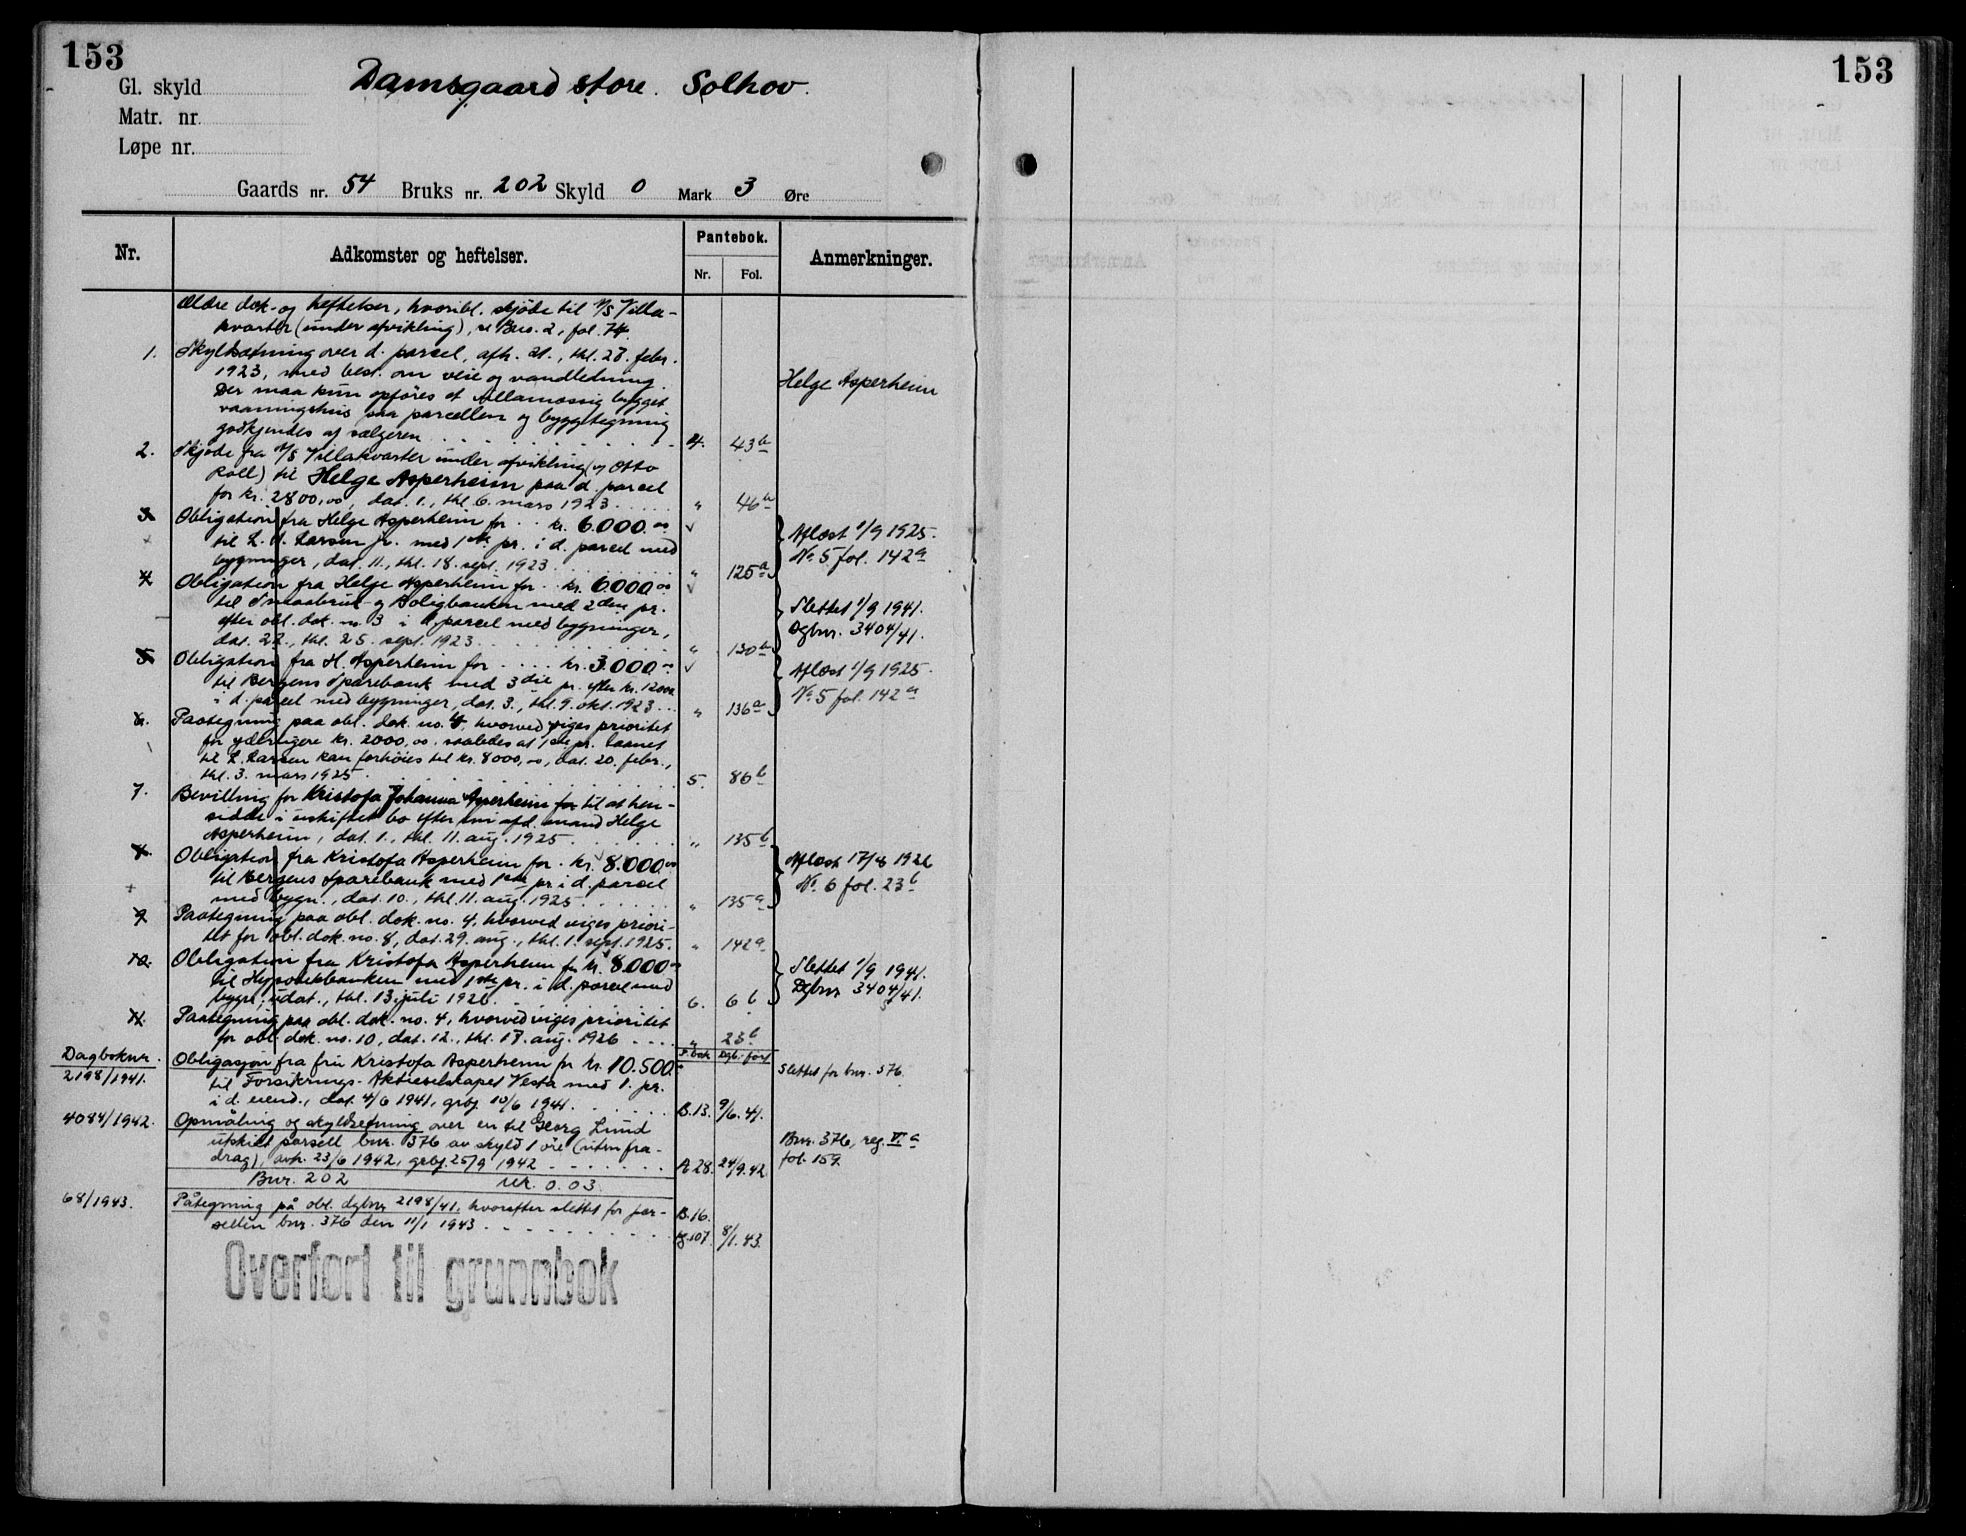 153
Gl. skyld
Matr. nr.
Løpe nr.
Damsgaard store. Solhov.
Gaards nr. 54 Bruks nr. 202 Skyld 0 Mark 3 Øre
Nr.
Adkomster og heftelser.
Pantebok.
Nr. Fol.
Anmerkninger.
Ældre dok- og heftelser, hvoribl. skjöde til A/S Villa-
kvarter (under afvikling), se Bno. 2, fol. 74.
1. Skyldsætning over d. parcel, afh. 21., thl. 28. febr.
1923, med best. om veie og vandledning.
Der maa kun opföres et villamæssig bygget
vaaningshus paa parcellen og byggetegning
godkjendes af sælgeren 4. 43b
Helge Asperheim
2. Skjöde fra A/S Villakvarter under afvikling (og Otto
Roll) til Helge Asperheim paa d. parcel
for kr. 2800,00, dat. 1., thl. 6. mars 1923 " 46b
3. Obligation fra Helge Asperheim for kr. 6.000.00
til L. Larsen jr. med 1ste pr. i d. parcel med
bygninger, dat. 11., thl. 18. sept. 1923 " 125a
Aflæst 1/9 1925.
No. 5 fol. 142a
4. Obligation fra Helge Asperheim for kr. 6000.00
til Smaabruk- og Boligbanken med 2den pr.
efter obl. dok. no. 3 i d. parcel med bygninger,
dat. 22., thl. 25. sept. 1923 " 130b
Slettet 1/9 1941.
Dgbnr. 3404/41.
5. Obligation fra H. Asperheim for kr. 3.000.00
til Bergens Sparebank med 3die pr. efter kr. 12000
i d. parcel med bygninger, dat. 3., thl. 9. okt. 1923 " 136a
Aflæst 1/9 1925.
No. 5 fol. 142a
6. Paategning paa obl. dok. no. 4, hvorved viges prioritet
for yderligere kr. 2000,00, saaledes at 1ste pr. laanet
til L. Larsen kan forhöies til kr. 8000,00, dat. 20. febr.,
thl. 3. mars 1925. 5. 86b
7. Bevilling for Kristofa Johanna Asperheim for til at hen-
sidde i uskiftet bo efter sin afd. mand Helge
Asperheim, dat. 1., thl. 11. aug. 1925 " 135b
8. Obligation fra Kristofa Asperheim for kr. 8.000.00
til Bergens Sparebank med 1ste pr. i d. parcel
med bygn., dat. 10., thl. 11. aug. 1925 " 135a
Aflæst 17/8 1926
No. 6 fol. 23b
9. Paategning paa obl. dok. no. 4, hvorved viges priori-
tet for obl. dok. no. 8, dat. 29. aug., thl. 1. sept. 1925. " 142a
10. Obligation fra Kristofa Asperheim for kr. 8000
til Hypotekbanken med 1ste pr. i d. parcel med
bygn., udat., thl. 13 juli 1926. 6. 6b
Slettet 1/9 1941.
Dgbnr 3404/41.
11. Paategning paa obl. dok. no. 4, hvorved viges prioritet
for obl. dok. no. 10, dat. 12., thl. 17. aug. 1926 " 23b
Dagboknr. P.bok Dgb.-ført
2198/1941. Obligasjon fra fru Kristofa Asperheim for kr. 10.500.-
til Forsikrings-Aktieselskapet Vesta med 1. pr.
i d. eiend., dat. 4/6 1941, grbj. 10/6 1941. B.13. 9/6.41.
Slettet for bnr. 376.
4084/1942. Opmåling og skyldsetning over en til Georg Lund
utskilt parsell bnr. 376 av skyld 1 öre (uten fra-
drag), avh. 23/6 1942, grbj. 25/9 1942 A 28. 24/9.42
Bnr. 376, reg. VI c
fol. 159.
Bnr. 202 Mr. 0.03.
68/1943. Påtegning på obl. dgbnr 2198/41, hvorefter slettet for par-
sellen bnr. 376 den 11/1 1943 B.16. 107. 8/1.43.
Overført til grunnbok
153